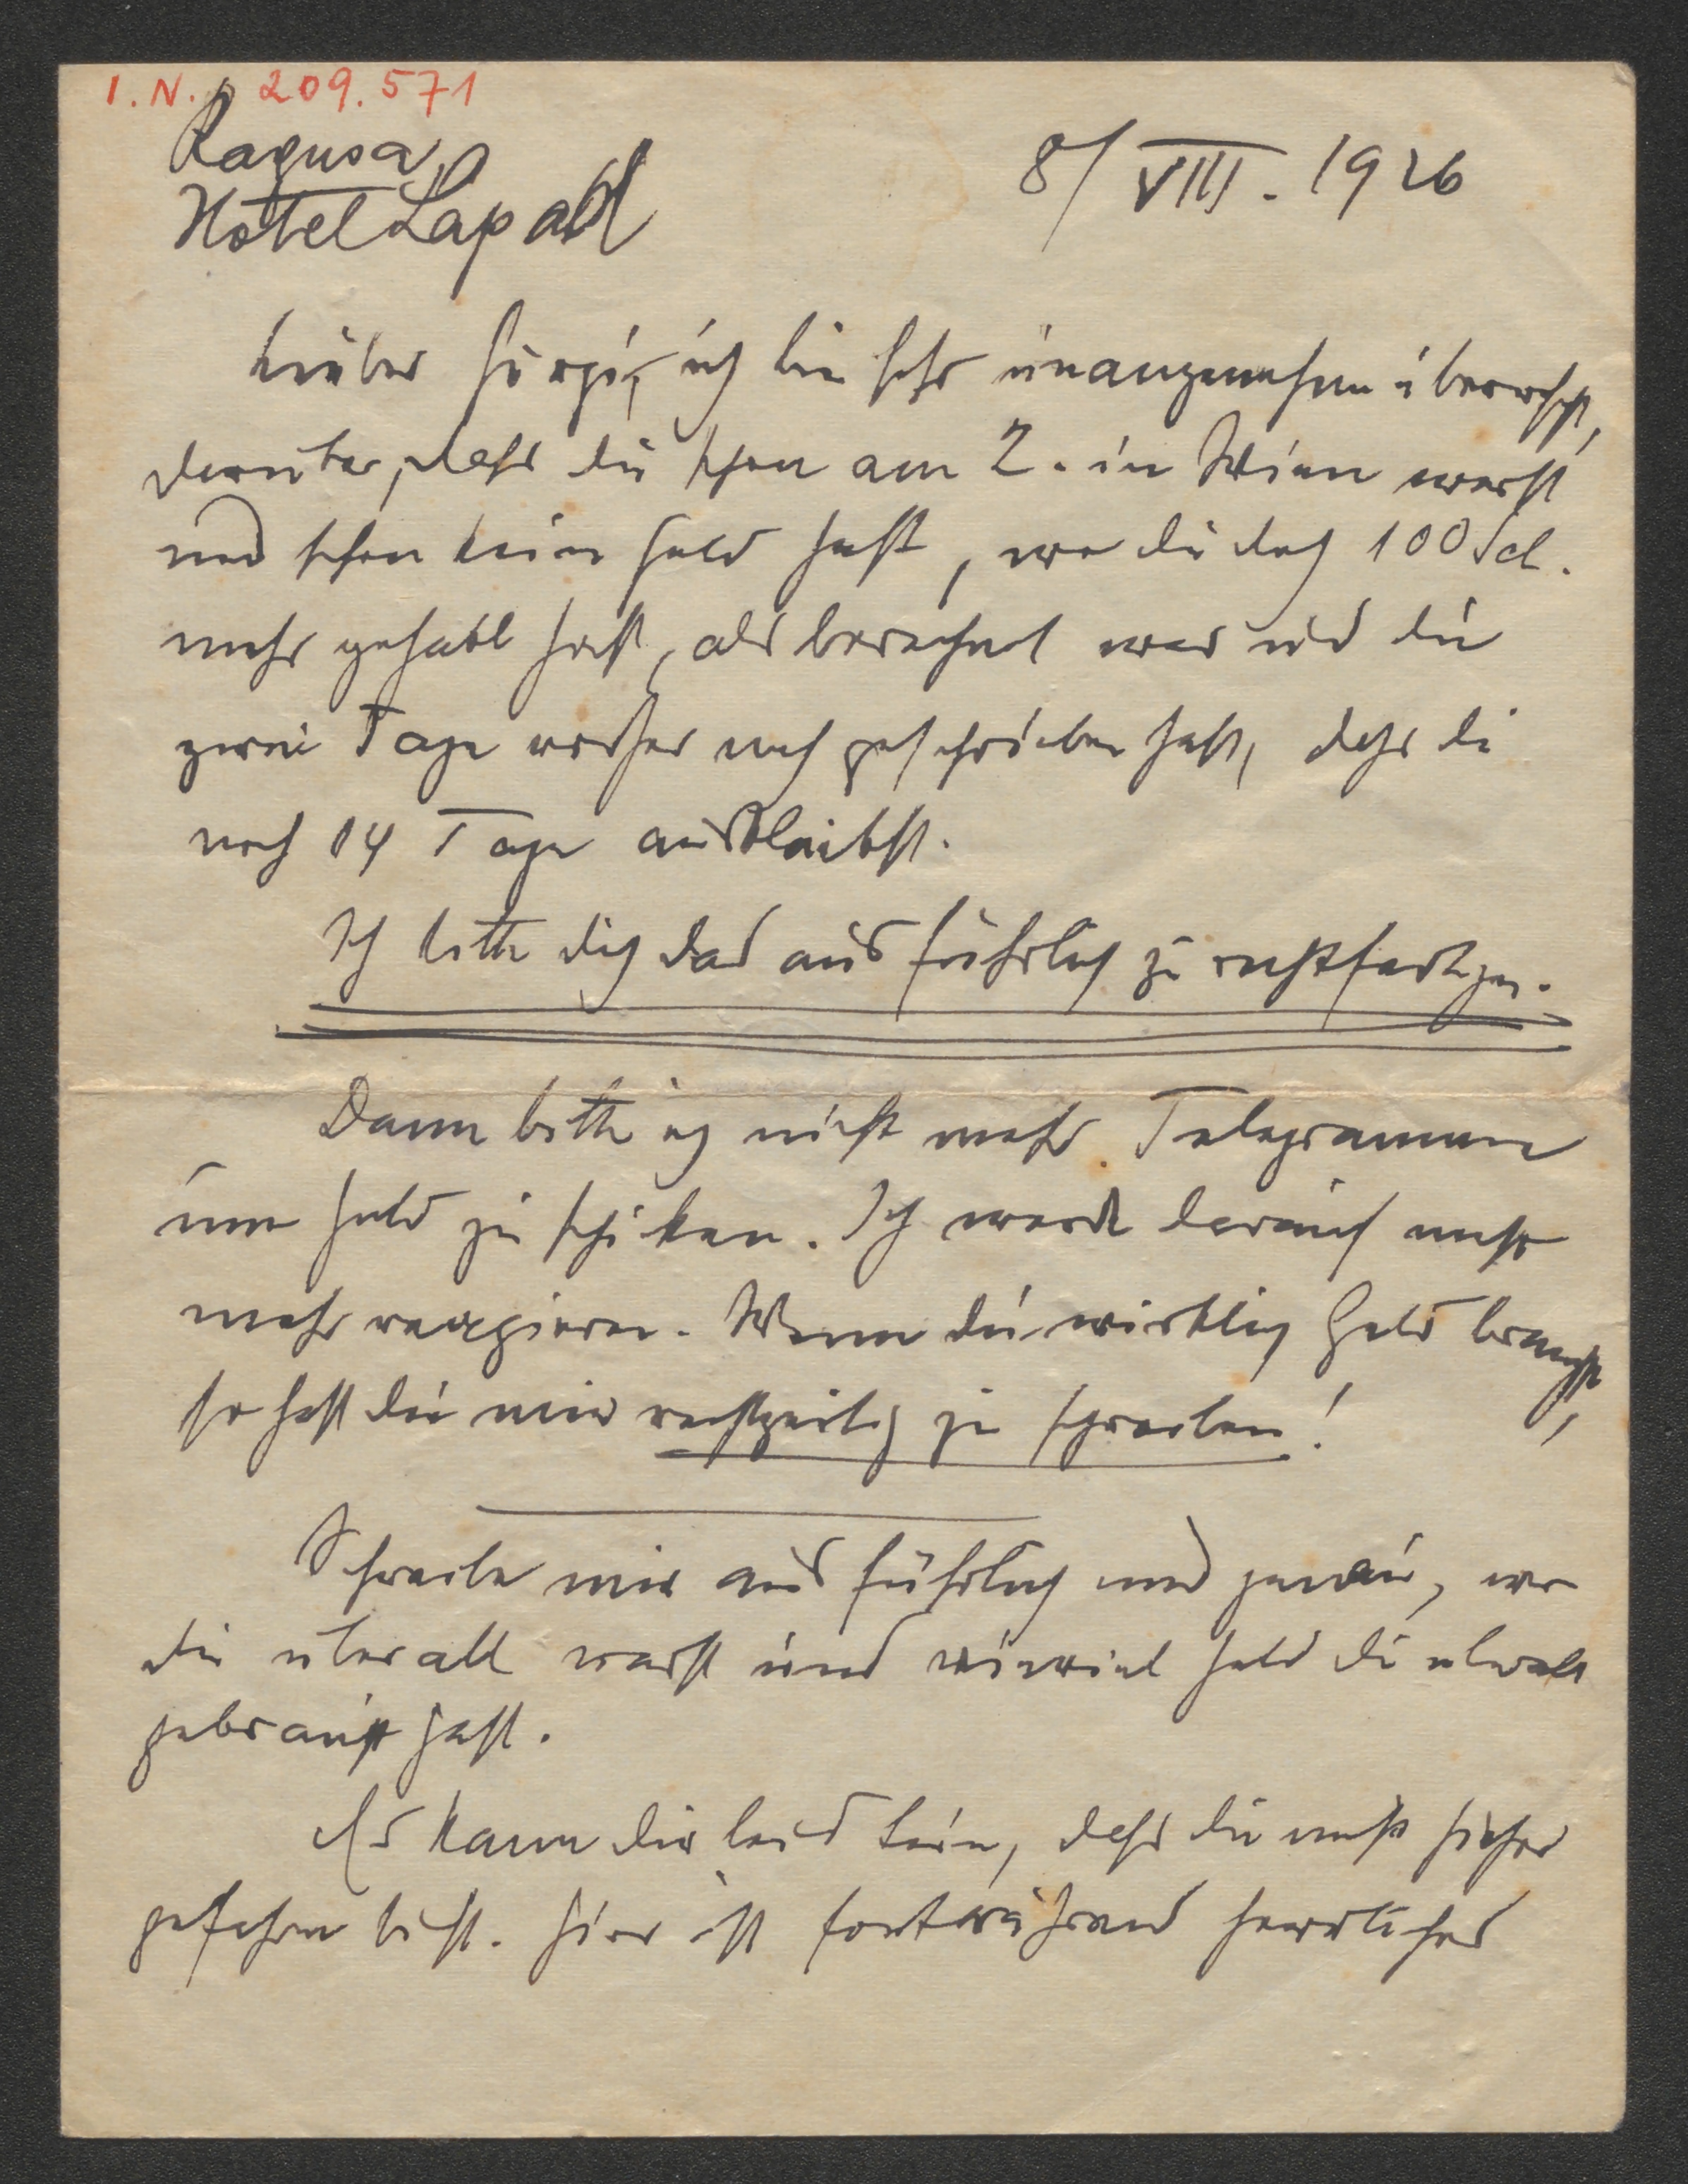 I.N. 209.571
Ragusa,
Hotel Lapad
8/VIII. 1926
Lieber Georg, ich bin sehr unangenehm überrascht,
darüber, dass du schon am 2. in Wien warst
und schon kein Geld hast, wo du doch 100 Sch.
mehr gehabt hast, als berechnet war und du
zwei Tage vorher noch geschrieben hast, dass du
noch 14 Tage ausbleibst.
Ich bitte dich das ausführlich zu rechtfertigen.
Dann bitte ich nicht mehr Telegramme
um Geld zu schicken. Ich werde darauf nicht
mehr reagieren. Wenn du wirklich Geld brauchst,
so hast du mir rechtzeitig zu schreiben!
Schreibe mir ausführlich und genau, wo
du überall warst und wieviel Geld du überall
gebraucht hast.
Es kann dir leid sein, dass du nicht hieher
gefahren bist. Hier ist fortwährend herrliches